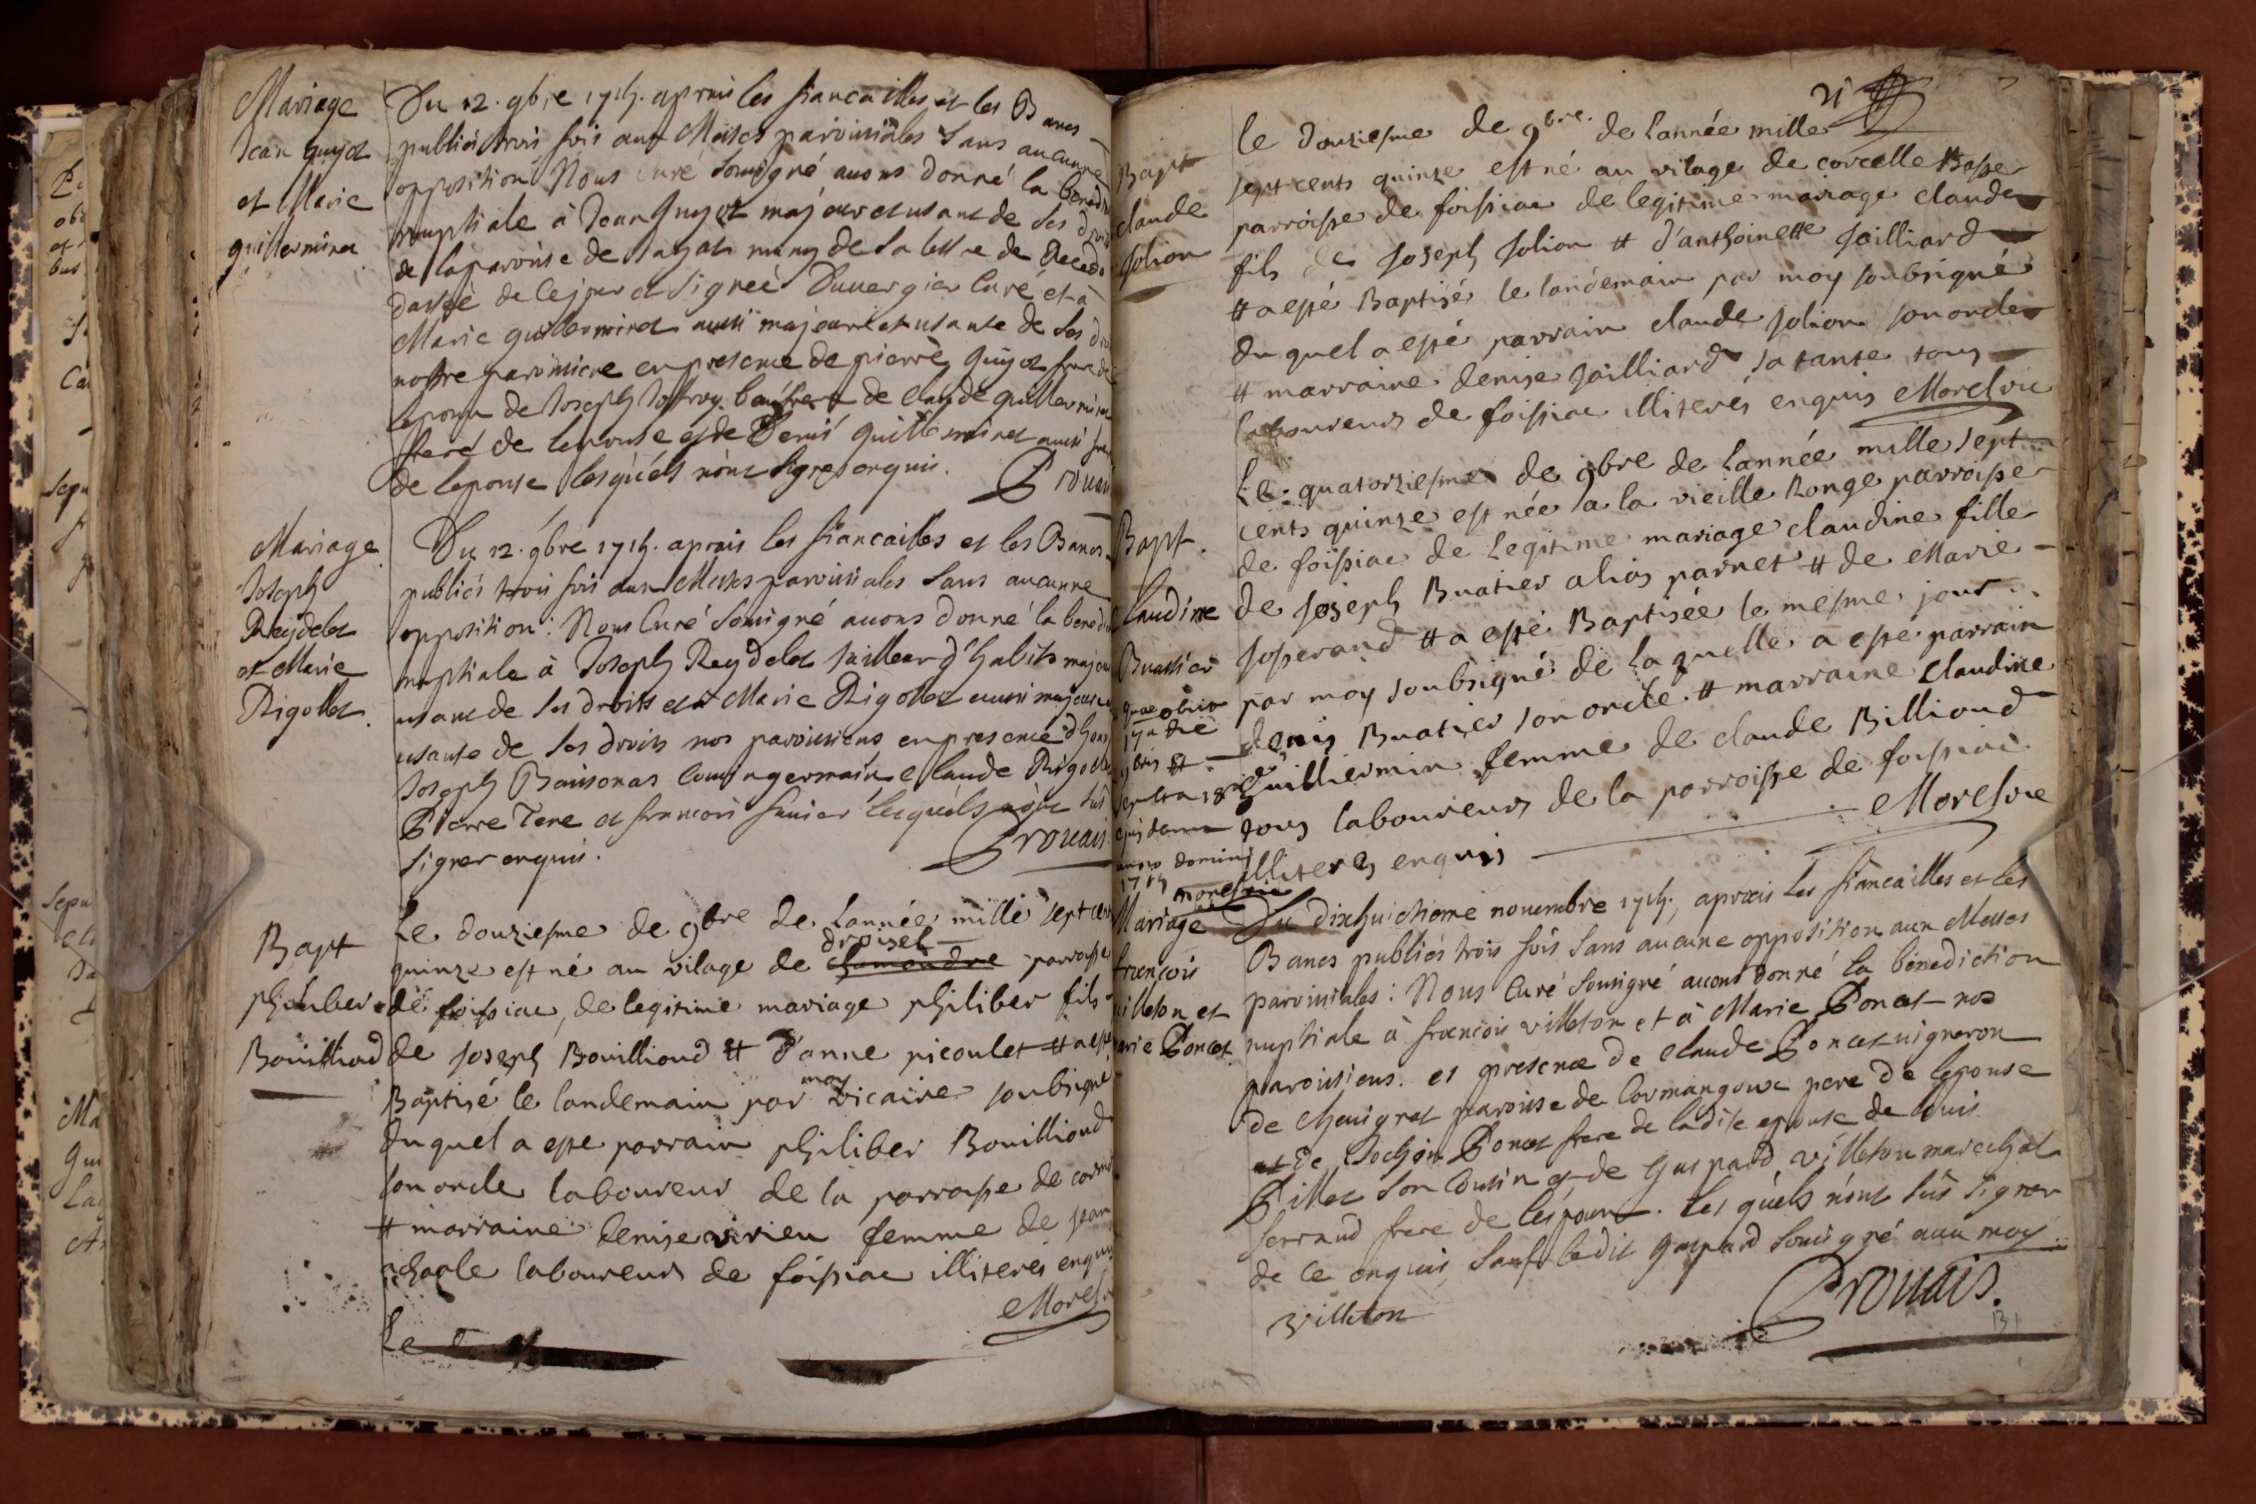 Mariage
Jean guyot
et Marie
guillerminet
Du 12. 9bre 1715. aprais les fiancailles et les Bancs
publiés trois fois aux Messes paroissiales sans aucunne
opposition Nous Curé soussigné avons donné la bened
nuptiale à Jean guyot majeur et usant de ses droits
de la paroisse de muny de sa lettre de Recedo
dattée de ce jour et signée Duvergier Curé et à
Marie guillerminet aussi majeure et usante de ses d
nostre paroissiene en presence de pierre guyot frere de
lepoux de Joseph Joffroy beaufrere de claude guillerminet
frere de lepouse et de Denis guillerminet aussi frere
de lepouse lesquels n'ont signer enquis.
Prouais
Mariage
Joseph
Reydelet
et Marie
Rigollet
Du 12. 9bre 1715. aprais les fiancailles et les Bancs
publiés trois fois aux Messes paroissiales sans aucunne
opposition : Nous Curé soussigné avons donné la bened
nuptiale à Joseph Reydelet tailleur d'habits majeur
usant de ses droits et à Marie Rigollet aussi majeure
usante de ses droits nos paroissiens en presence d'hon
Joseph Baisonas cousin germain claude Rigollet
Pierre Tene et francois lesquels n'ont sus
signer enquis.
Prouais
Bapt
philiber
Bouillioud
Le douziesme de 9bre de lannée mille sept cens
droisel
quinze est né au vilage de chamandre parroisse
de foissiac, de legitime mariage philiber fils
de joseph Bouillioud et d'anne picoulet et a esté
moy
Baptisé le landemain par vicaire soubsigné
duquel a esté parrain philiber Bouillioud
son oncle laboureur de la parroisse de
et marraine denise vivieu femme de jean
laboureurs de foissiac illiterés enquis
Morel vic
Le
21
Bapt
claude
Jolion
le douziesme de 9bre. de lannée mille
sept cents quinze est né au vilage de corcelle Basse
parroisse de foissiac de legitime mariage claude
fils de joseph jolion et d'anthoinette jailliard
et a esté Baptisé le landemain par moy soubsigné
du quel a esté parrain claude jolion son oncle
et marraine denise jailliard sa tante tous
laboureurs de foissiac illiterés enquis Morel vic
Bapt.
Claudine
Buattier
quae obiit
17a die
9bris et
sepulta 18a
ejusdem
anno domini
1715
Morel vic
Le quatorziesme de 9bre de lannée mille sept
cents quinze est née a la vieille Ronge parroisse
de foissiac de Legitime mariage claudine fille
de joseph Buatier alias parnet et de Marie
josserand et a esté Baptisée le mesme jour
par moy soubsigné de laquelle a esté parrain
denis Buatier son oncle. et marraine claudine
guilliermin femme de claude Billioud
tous laboureurs de la parroisse de foissiac
illiterés enquis
Morel vic
Mariage
françois
villeton et
Marie Poncet
Du dixhuictieme novembre 1715, aprais les fiancailles et les
Bancs publiés trois fois sans aucune opposition aux Messes
paroissiales : Nous Curé soussigné avons donné la bénédiction
nuptiale à françois villeton et à Marie Poncet nos
paroissiens. en presence de claude Poncet vigneron
de chevignat paroisse de Cormangoux pere de lepouse
et de Poncet frere de ladite epouse de louis
Pillet son cousin et de Gaspard villeton marechal
ferrand frere de lépoux. Les quels n'ont sus signer
de ce enquis sauf ledit gaspard soussigné avec moy
villeton
Prouais.